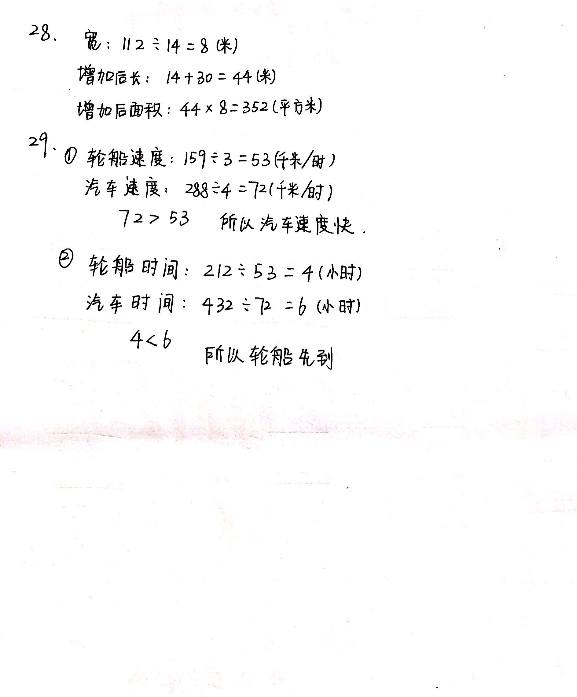 28. 宽：112÷14=8(米)
增加后长：14+30=44(米)
增加后面积：44×8=352(平方米)
29. ① 轮船速度：159÷3=53(千米/时)
汽车速度：288÷4=72(千米/时)
72>53 所以汽车速度快.
② 轮船时间：212÷53=4(小时)
汽车时间：432÷72=6(小时)
4<6 所以轮船先到